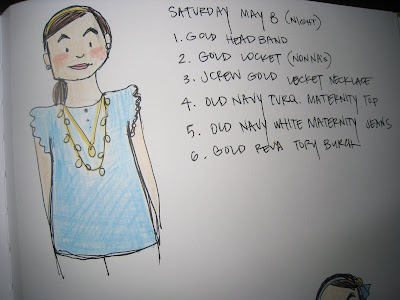 SATURDAY MAY 8 (NIGHT)
1. GOLD HEADBAND
2. GOLD LOCKET (NONNA'S)
3. JCREW GOLD LOCKET NECKLACE
4. OLD NAVY TURQ. MATERNITY TOP
5. OLD NAVY WHITE MATERNITY JEANS
6. GOLD REVA TORY BURCH